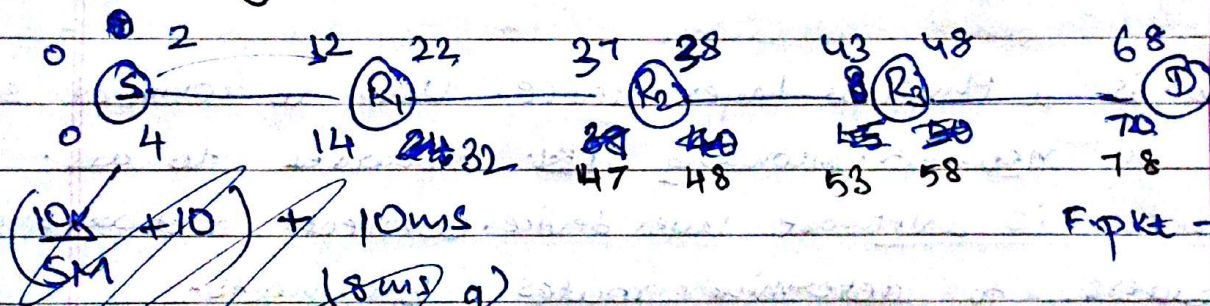 0 2 12 22 37 38 43 48 68
S R1 R2 R3 D
0 4 14 32 47 48 53 58 70 78
(10K/5M + 10) + 10ms Fpkt -
(8ms q)